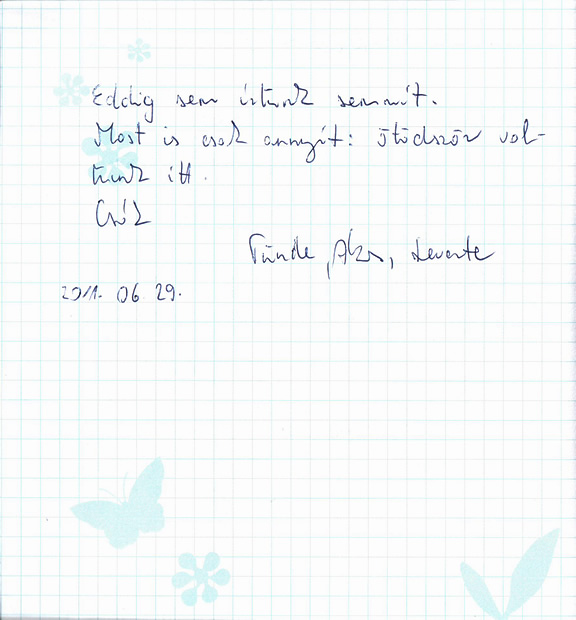 Eddig sem írtunk semmit.
Most is csak annyit: ötödször vol-
tunk itt.
Csók
Tünde, Ákos, Levente
2011. 06 29.